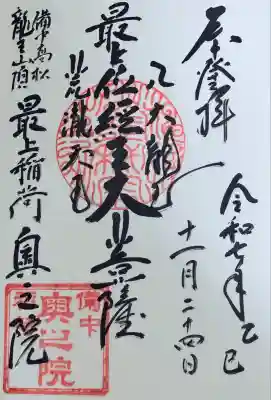 奉登拝
令和七年乙巳
十一月二十四日
八大龍王
最上位經王大菩薩
荒瀧天王
備中高松
龍王山頂
最上稲荷 奥之院
備中
奥之院